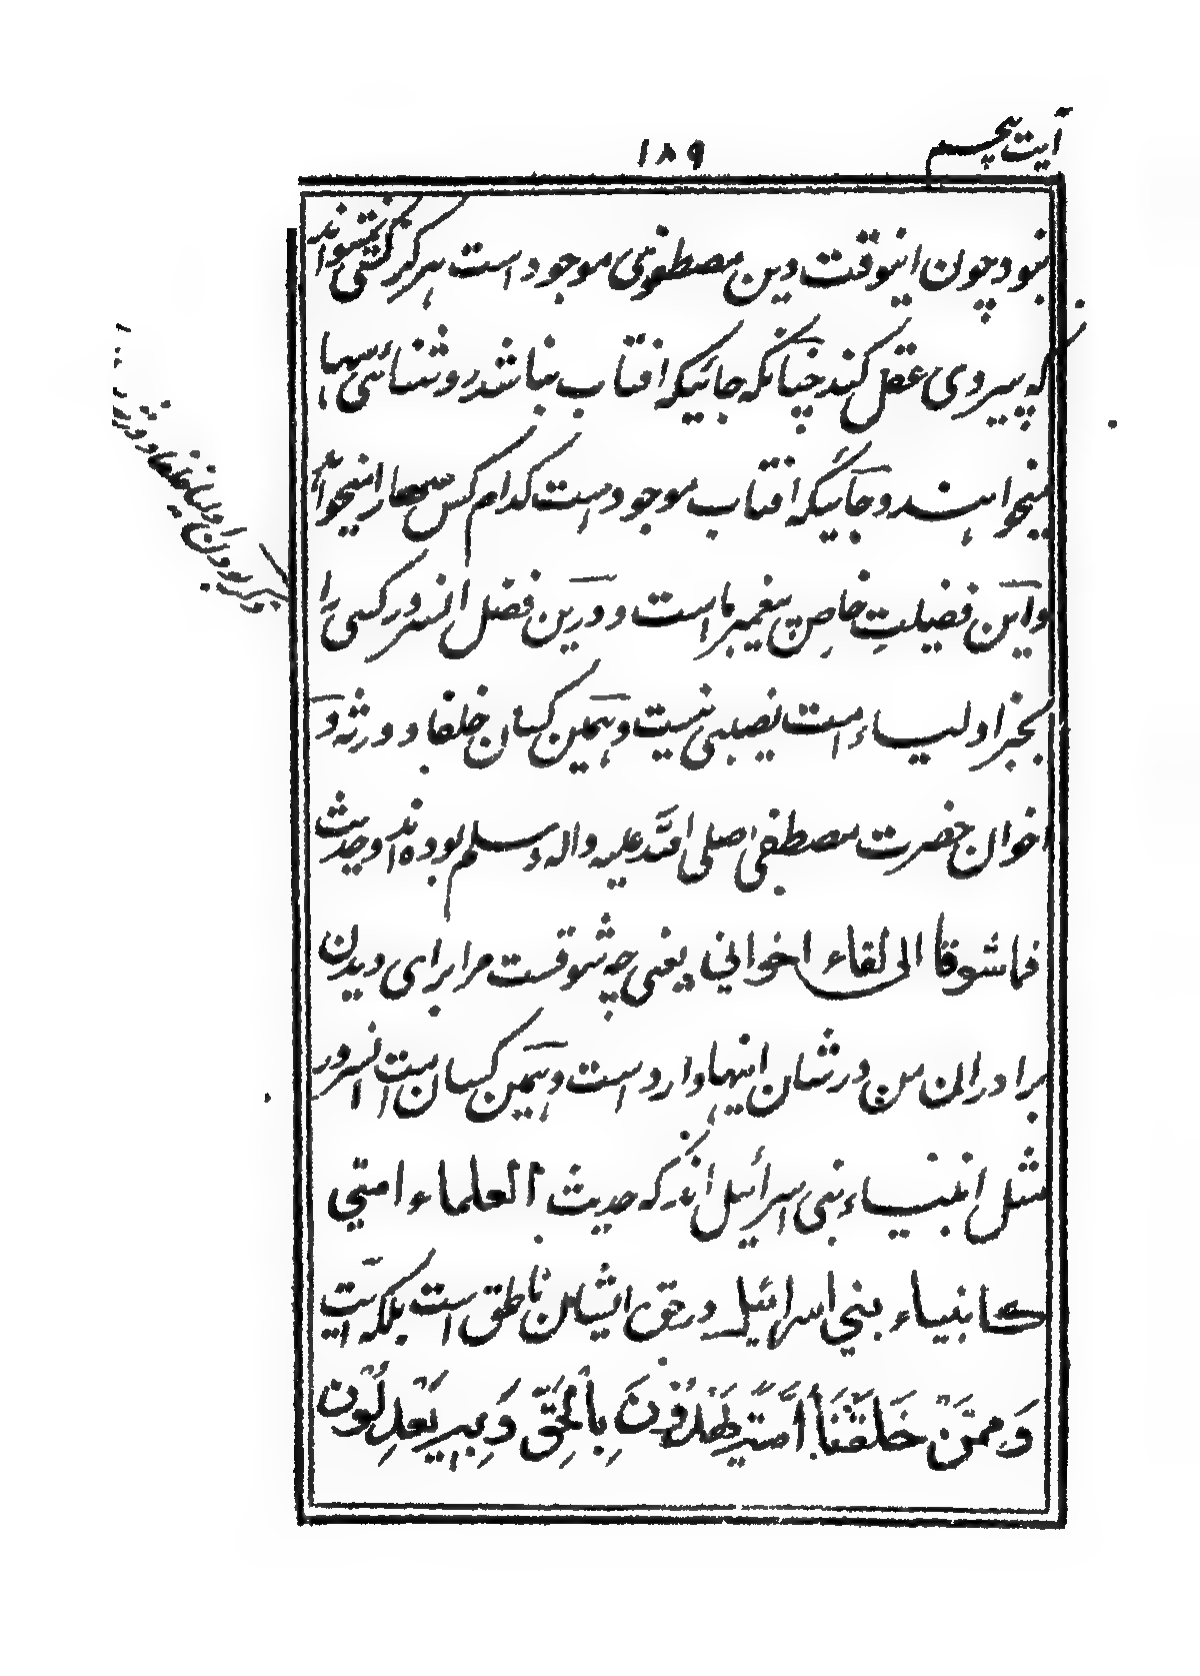 آیت پنجم
۱۸۹
نبود و چون اینوقت دین مصطفوی موجود است هرگز کسی نمیتواند
که پیروی عقل کند چنانکه جائیکه افتاب نباشد روشنائی سها
میخواهند و جائیکه افتاب موجود است کدام کس سها را میخواهد
و این فضیلت خاص پیغمبر ما است و درین فضل انسرور کسی را
بجز اولیاء امت نصیبی نیست و همین کسان خلفا و ورثه و
اخوان حضرت مصطفی صلی الله علیه واله وسلم بوده اند و حدیث
فما شوقا الی لقاء اخوانی یعنی چه شوقست مرا برای دیدن
برادران من در شان اینها وارد است و همین کسان است انسرور
مثل انبیاء بنی اسرائیل اند که حدیث العلماء امتی
کانبیاء بنی اسرائیل در حق ایشان ناطق است بلکه آیت
وَمِمَّنْ خَلَقْنَا أُمَّةٌ يَهْدُونَ بِالْحَقِّ وَبِهِ يَعْدِلُونَ
ذکر بودن اولیا خلفا و ورثه